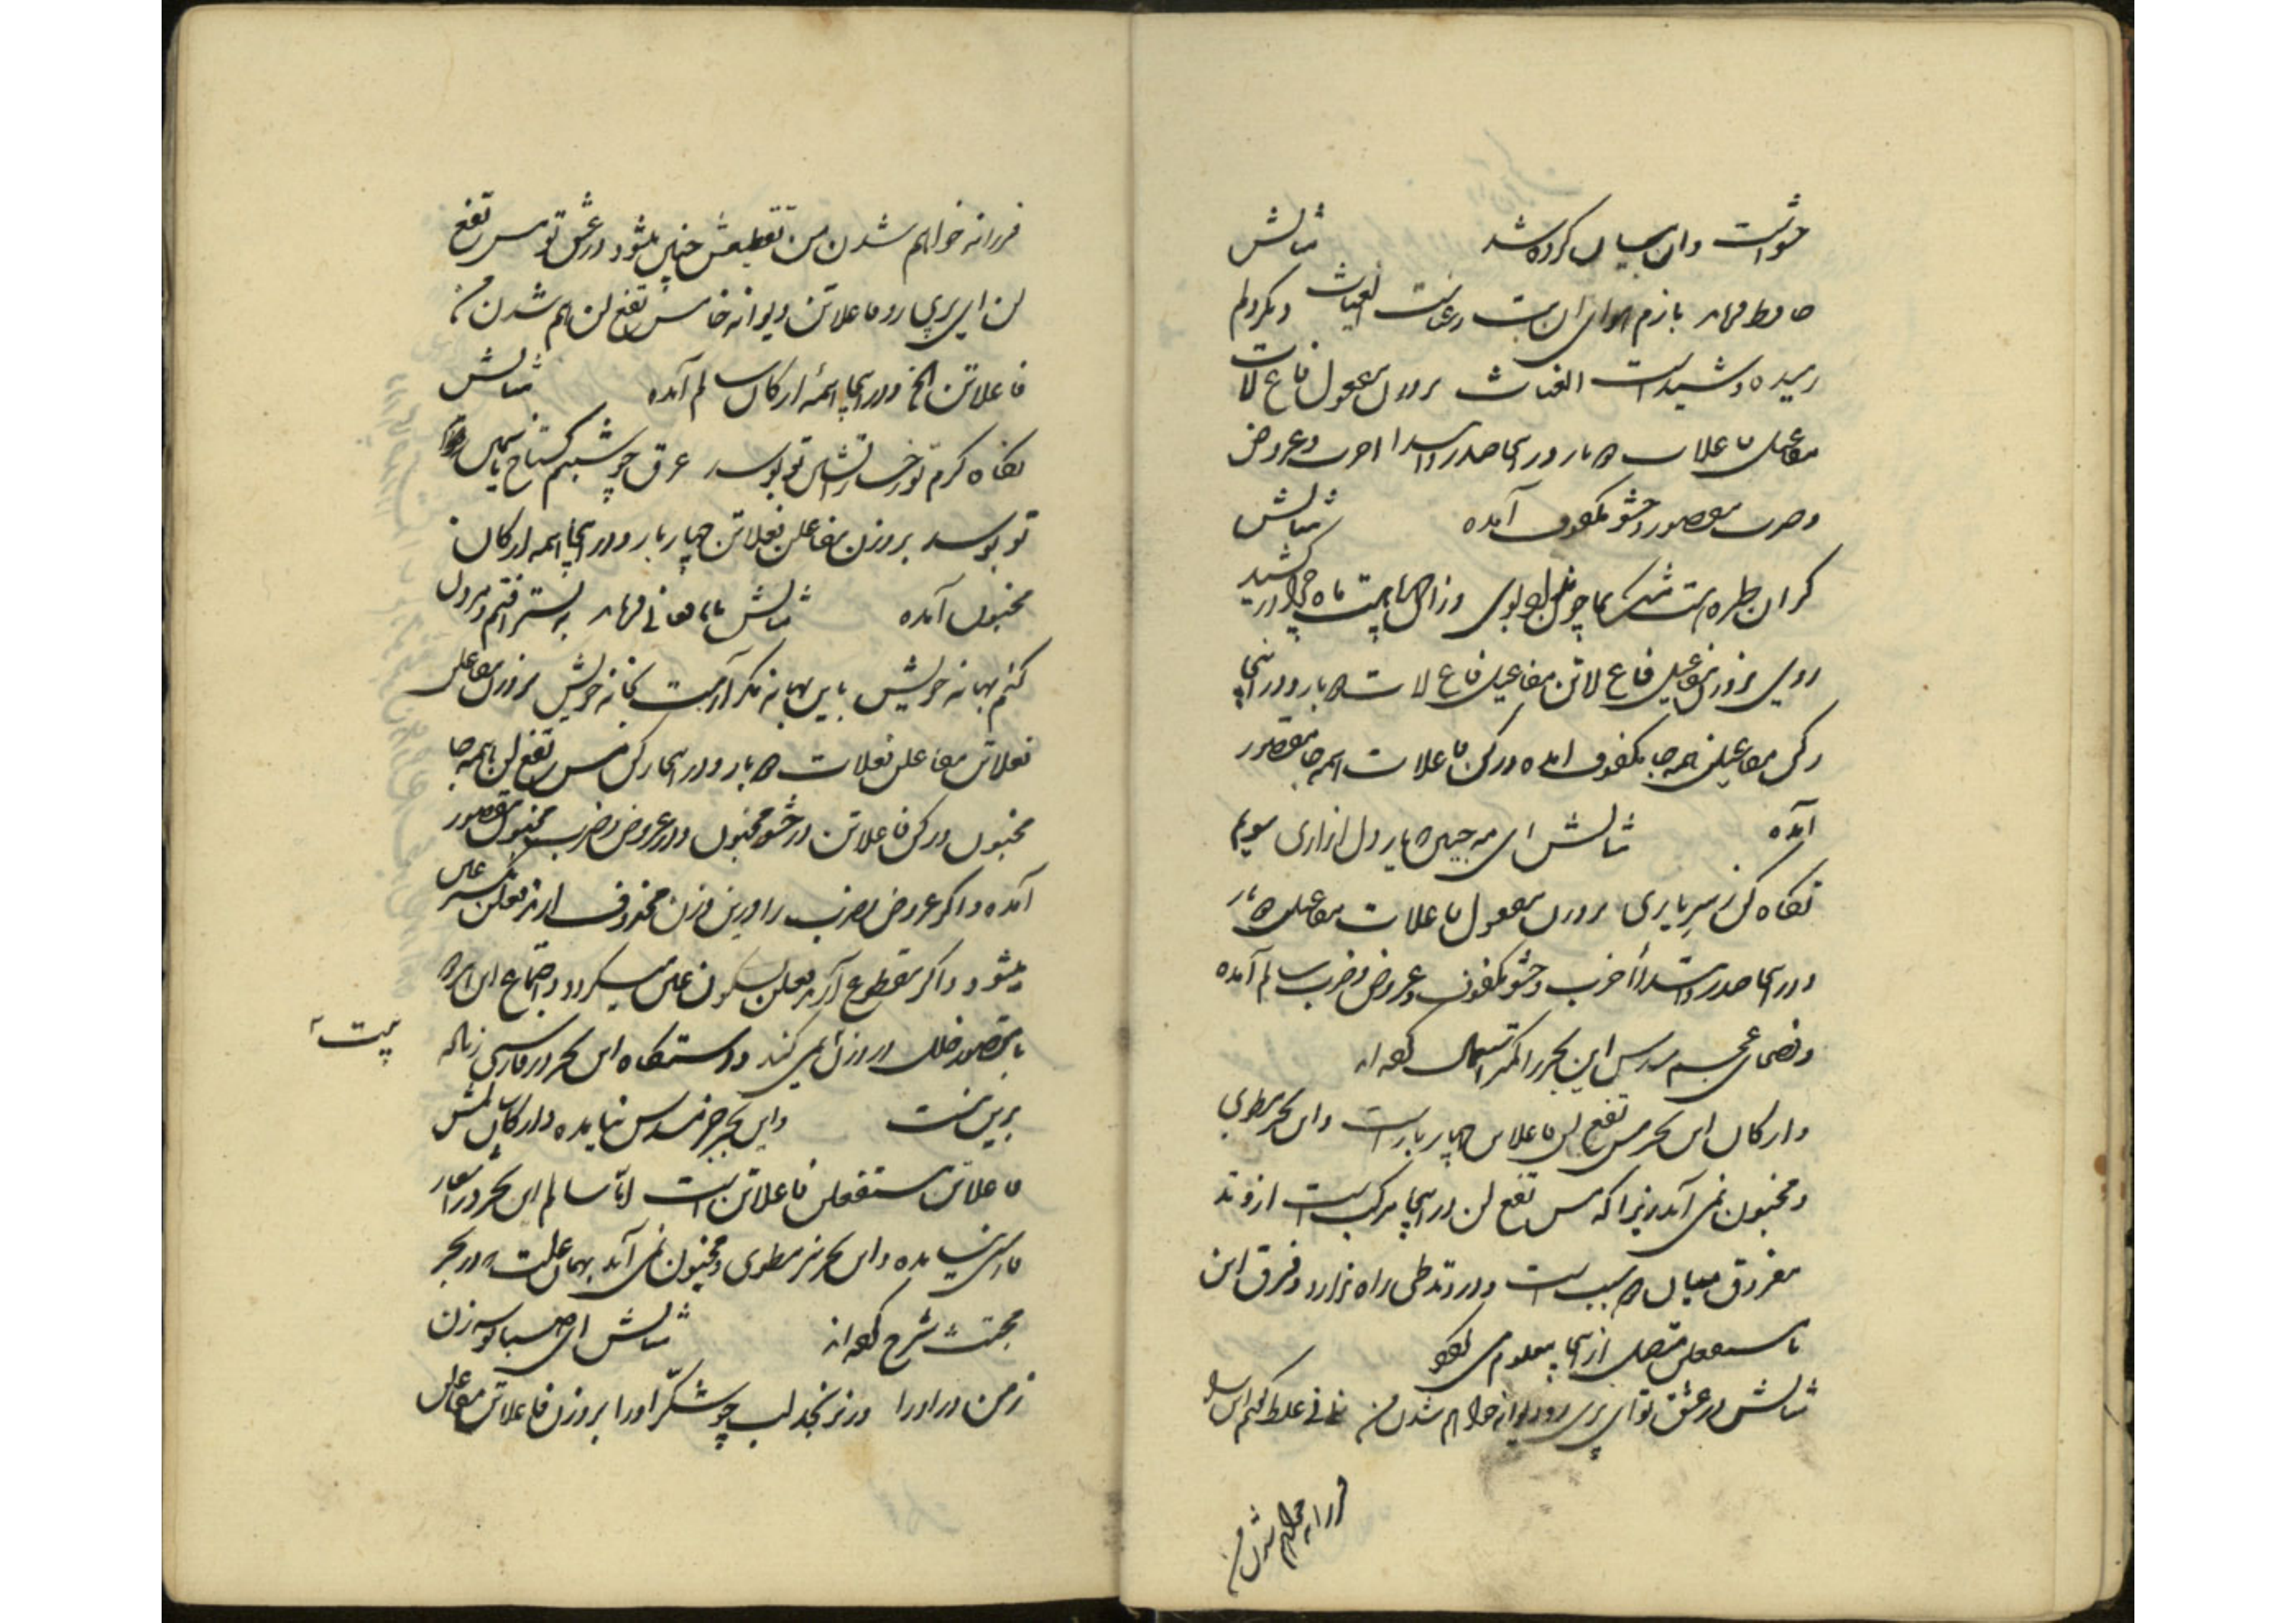 حشو است و ان بیان کرده شد مثالش
حافظ فرماید بازم هوای ان بت رعناست الغیاث دیگر دلم
رمیده و شیداست الغیاث بروزن مفعول فاع لات
مفاعیل فاعلات دو بار و در اینجا صدر و ابتدا اخرب و عروض
و ضرب مقصور و حشو مکفوف آمده مثالش
کر ان طره
روی بروزن مفاعیل فاع لاتن مفاعیل فاع لات دو بار و در اینجا
رکن مفاعیلن همه جا مکفوف امده و رکن فاعلات همه جا مقصور
آمده مثالش ای مه جبین
نکاه کن ز سر یاری بروزن مفعول فاعلات مفاعیلن دو بار
و در اینجا صدر و ابتدا اخرب و حشو مکفوف و عروض و ضرب سالم آمده
و فصحای عجم مسدس این بحر را کمتر استعمال کرده اند
و ارکان این بحر مس تفع لن فاعلاتن چهار بار است و این بحر مطوی
و مخبون نمی آید زیرا که مس تفع لن در اینجا مرکب است از وتد
مفروق میان دو سبب است و در وتد طی راه ندارد و فرق این
با مستفعلن متصل از اینجا معلوم می شود
مثالش در عشق تو ای پری رو دیوانه خواهم شدن من نی نی غلط کفتم این بار
فرزانه خواهم شدن من
فرزانه خواهم شدن من تقطیعش چنین میشود در عشق تو مس تفع
لن ای پری رو فاعلاتن دیوانه خا مس تفع لن هم شدن من
فاعلاتن الخ و در اینجا همه ارکان سالم آمده مثالش
نکاه کرم تو رخسار آتشین تو بوسد عرق چو شبنم کستاخ یاسمین
تو بوسد بروزن مفاعلن فعلاتن چهار بار و در اینجا همه ارکان
مخبون آمده مثالش بابا فغانی فرماید به بستر افتم و مردن
کنم بهانه خویش باین بهانه مکر آرمت بخانه خویش بروزن مفاعلن
فعلاتن مفاعلن فعلات دو بار و در اینجا رکن مس تفع لن همه جا
مخبون و رکن فاعلاتن در حشو مخبون و در عروض و ضرب مخبون مقصور
آمده و اکر عروض و ضرب را درین وزن محذوف ارند فعلن بکسر عین
میشود و اکر مقطوع آرند فعلن بسکون عین میکردد و اجتماع این هر دو
با مقصور خلل در وزن نمی کند و دستکاه این بحر در فارسی زیاده
برین نیست و این بحر جز مسدس نیامده و ارکان المش
بیت
فاعلاتن مستفعلن فاعلاتن است اما سالم این بحر در اشعار
فارسی نیامده و این بحر نیز مطوی و مخبون نمی آید بهمان علت که در بحر
مجتث شرح کرده اند مثالش ای صبا بوسه زن
ز من در او را ور نرنجد لب چو شکر او را بروزن فاعلاتن مفاعلن